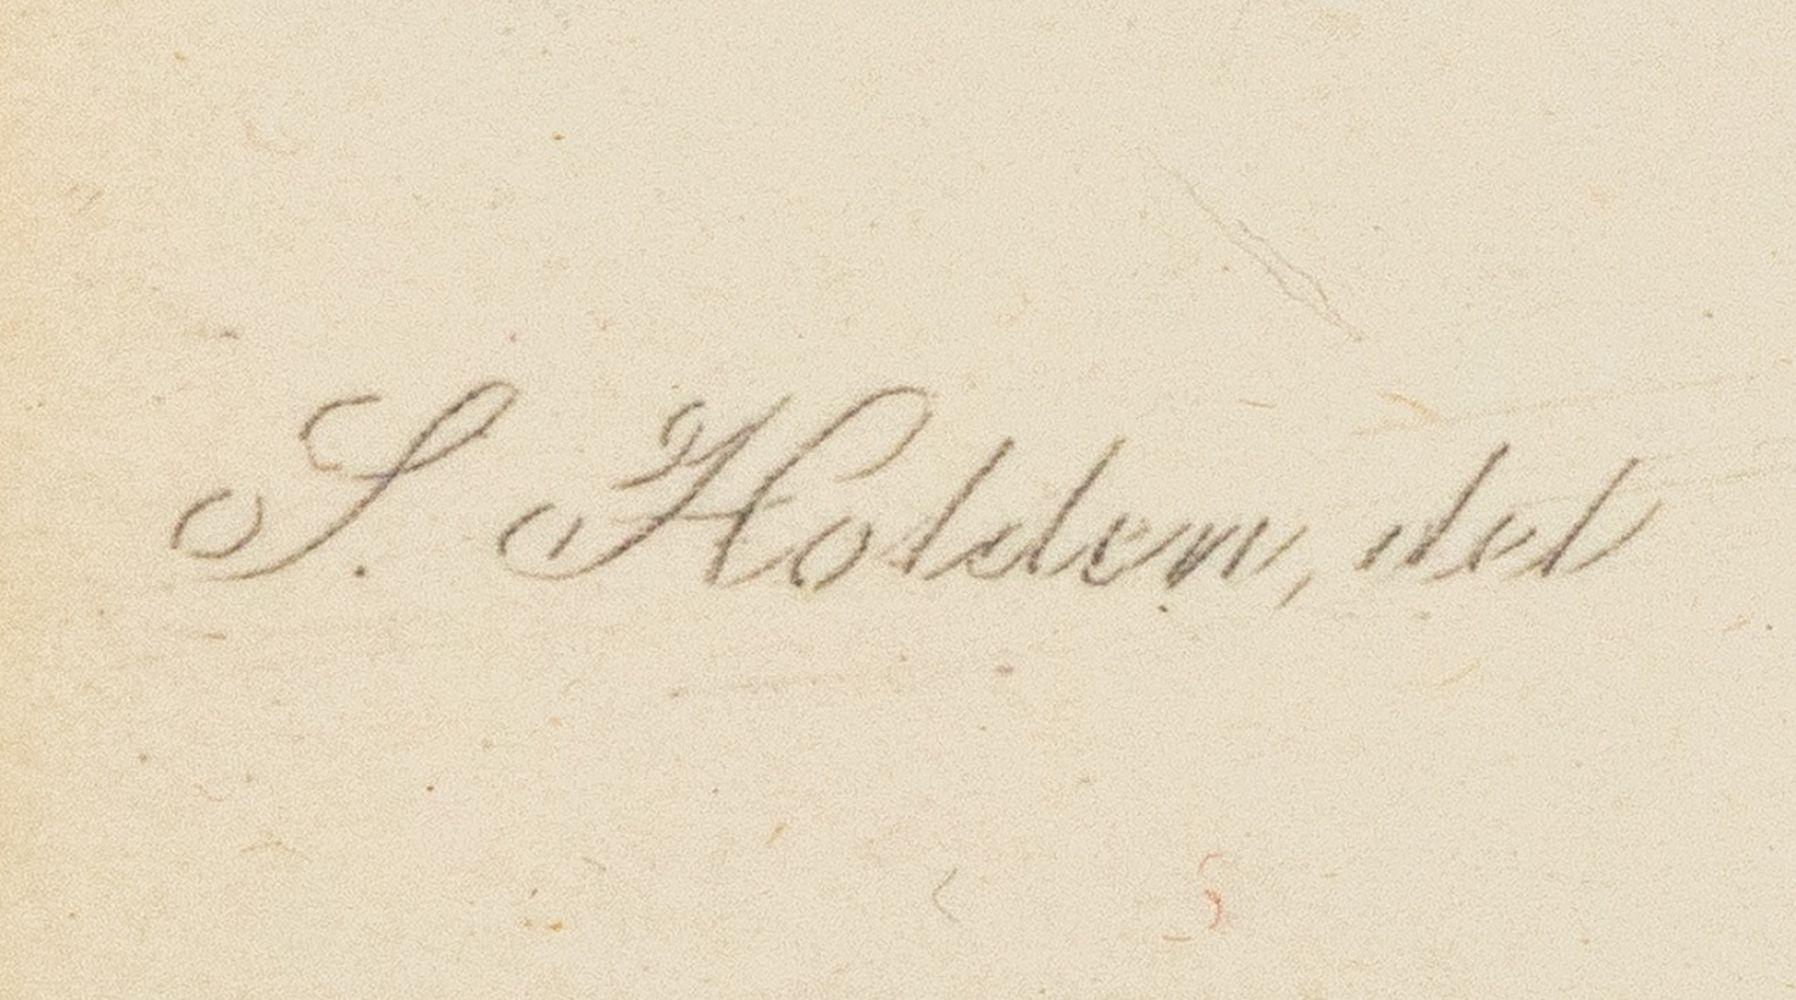 S. Holden, del